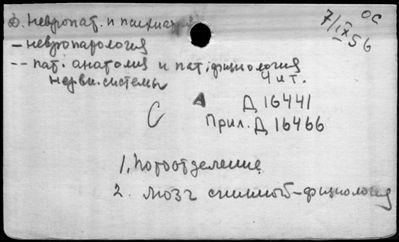 Д. невропат. и психиат.
ОС
7/IX 56
– невропатология
-- пат. анатомия и пат. физиология
нерви. системы
Чит.
С А Д 16441
Прил. Д 16466
1. Потоотделение
2. мозг спинной – физиология